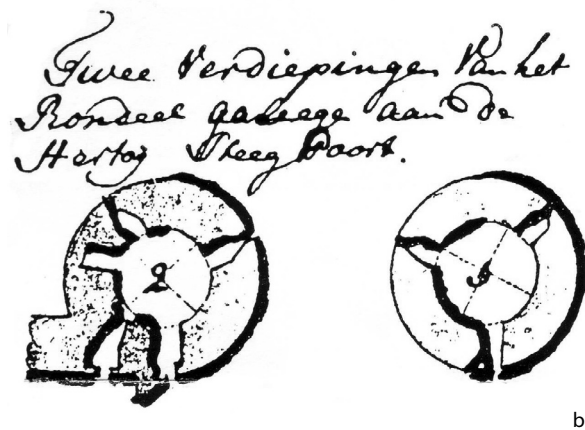 Twee Verdiepingen Van het
Rondeel geleege aan de
Hartog Steeg Poort.
2
b